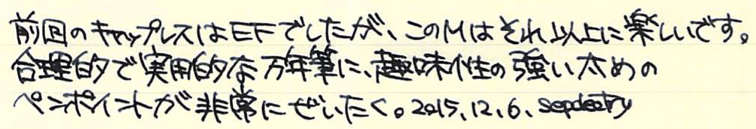 前回のキャップレスはEFでしたが、このMはそれ以上に楽しいです。
合理的で実用的な万年筆に、趣味性の強い太めの
ペンポイントが非常にぜいたく。2015.12.6.